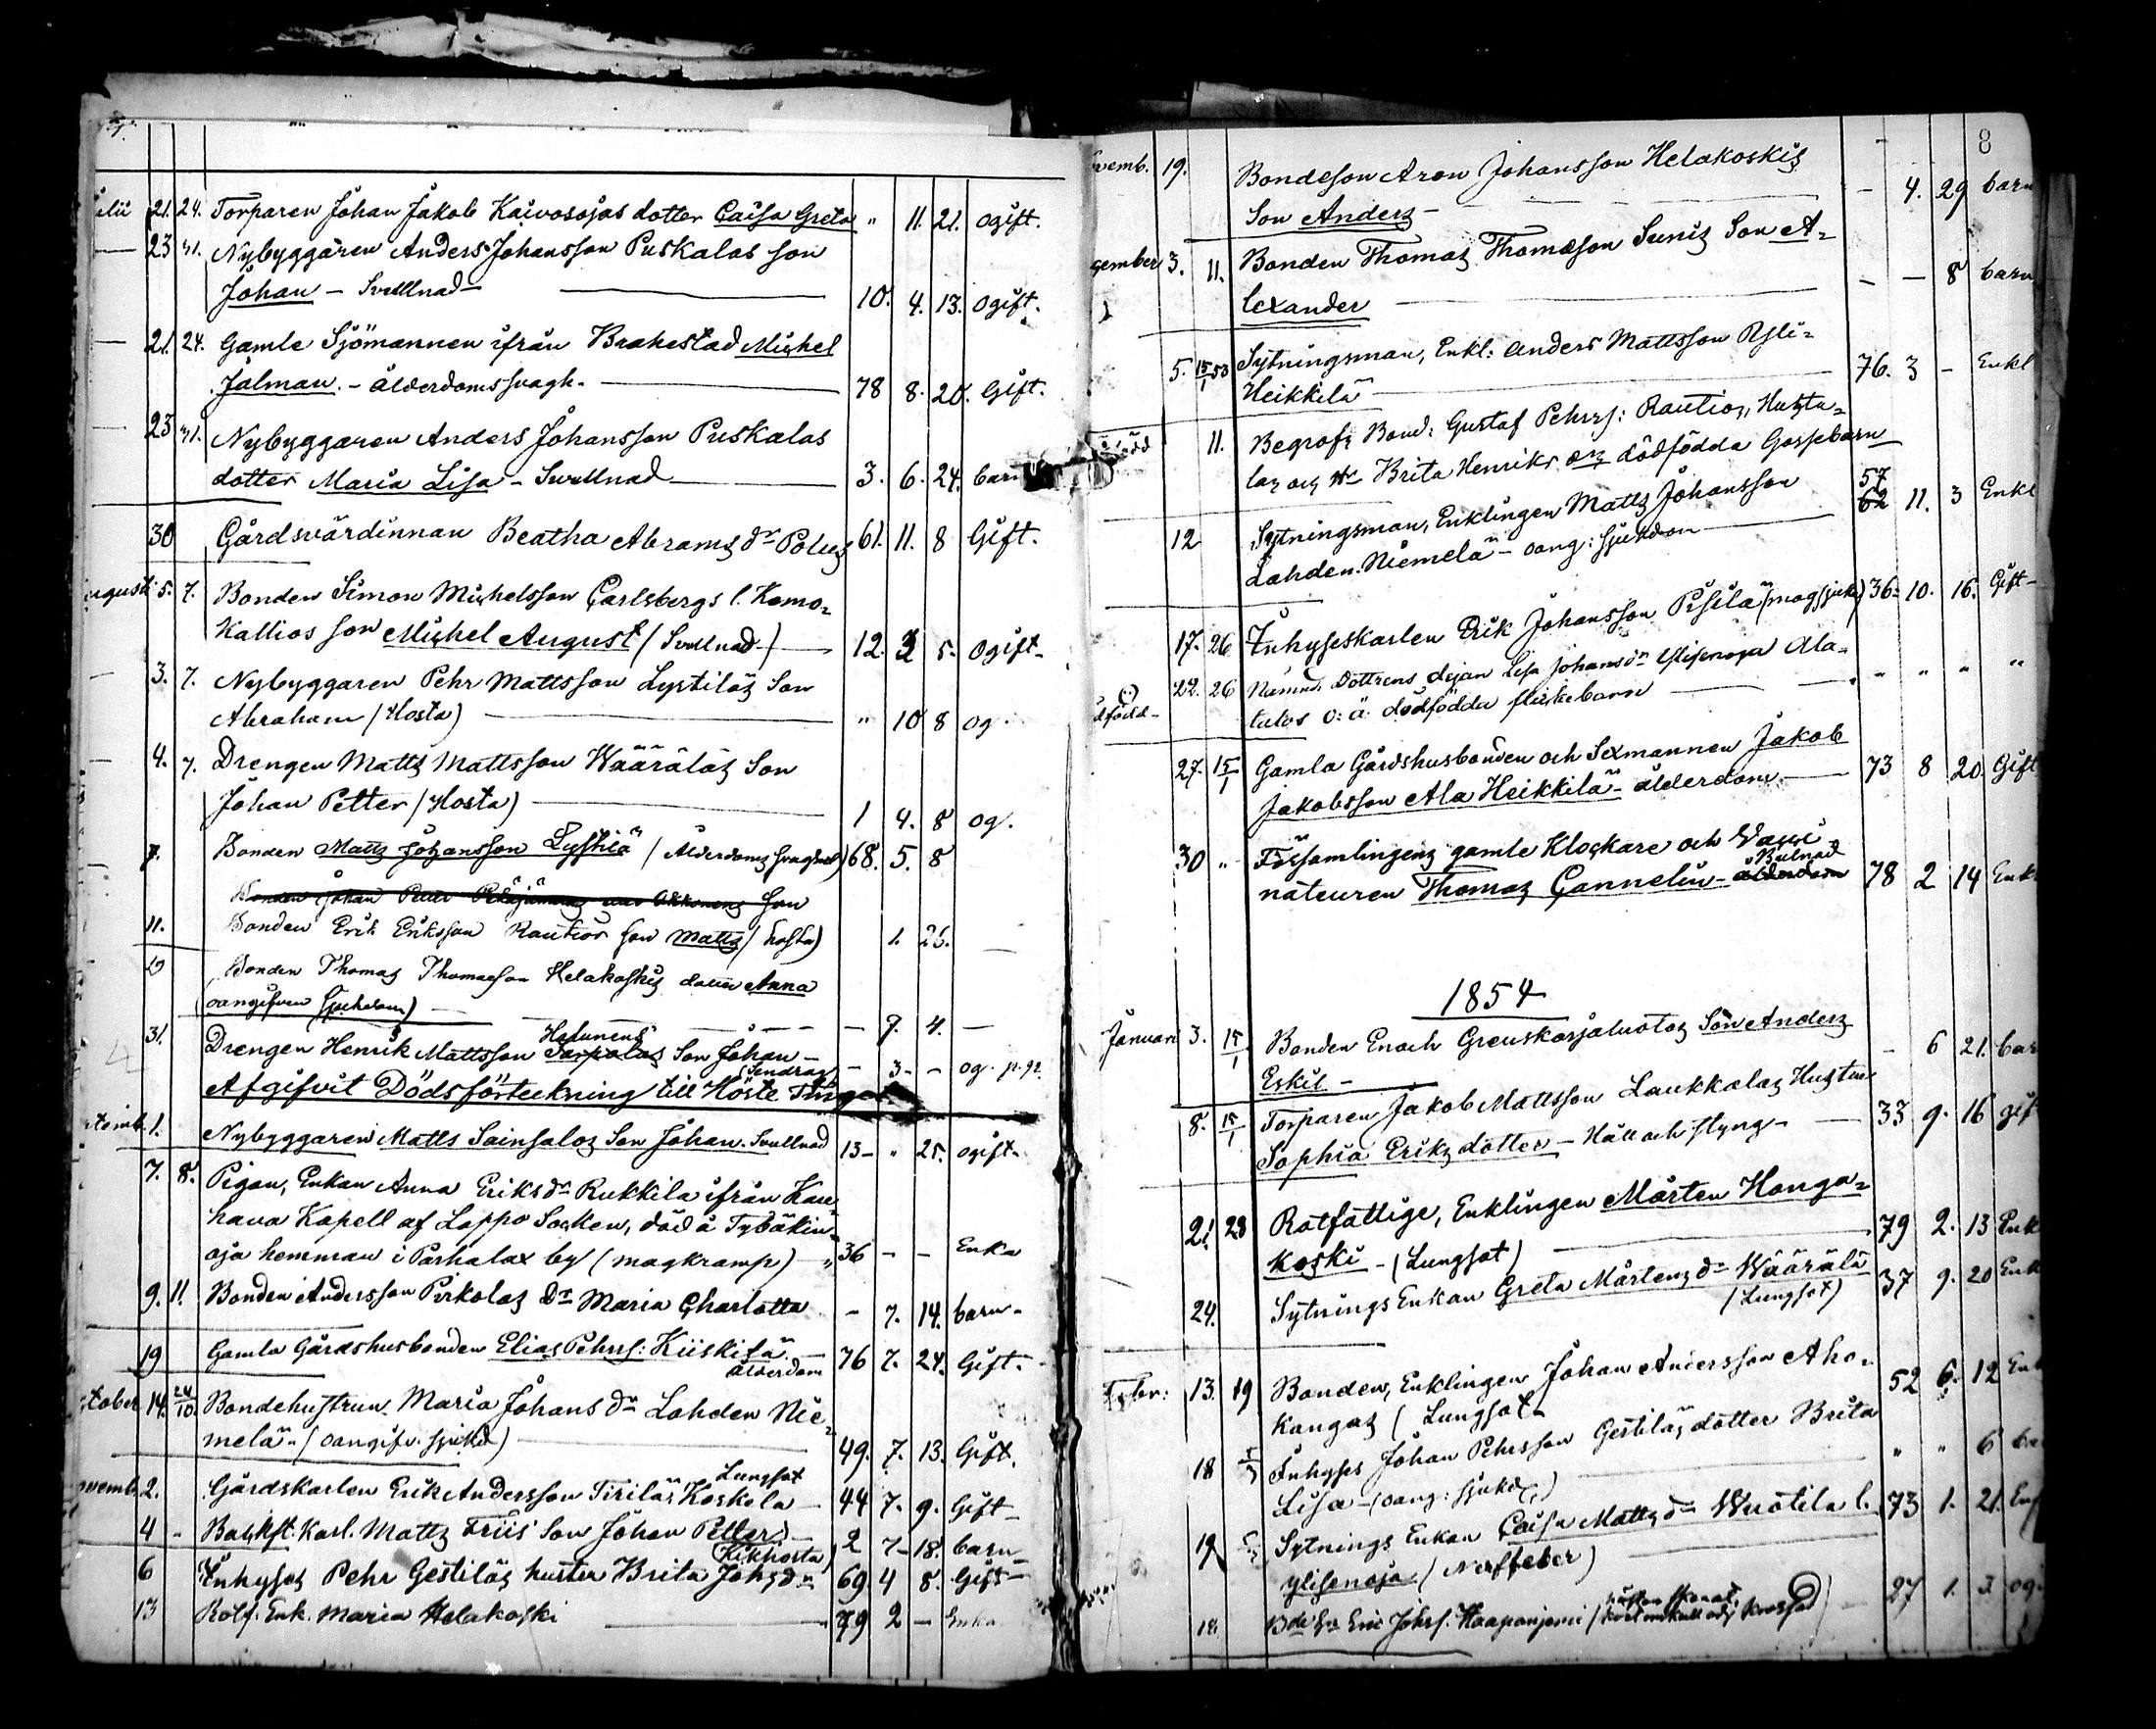 21. 24. Torparen Johan Jakob Kaivosojas dotter Caisa Greta " 11. 21. ogift.
23 Nybyggaren Anders Johansson Puskalas son
Johan - Svullnad - 10. 4. 13. ogift.
21. 24. Gamle Sjömannen ifrån Brahestad Michel
Jalman. - ålderdomssvagh. 78 8. 20. Gift.
23 Nybyggaren Anders Johansson Puskalas
dotter Maria Lisa - Svullnad 3. 6. 24. barn
30 Gårdsvärdinnan Beatha Abrams dr Polus 61. 11. 8 Gift.
5. 7. Bonden Simon Michelsson Carlsbergs l. Komo-
Kallios son Michel August (Svullnad) 12. 5. Ogift
3. 7. Nybyggaren Pehr Mattsson Lystiläs Son
Abraham (Hosta) " 10 8 og.
4. 7. Drengen Matts Mattsson Wääräläs Son
Johan Petter (Hosta) 1 4. 8 og.
7. Bonden Matts Johansson Lystilä (Ålderdoms svaghet) 68. 5. 8
son
11. Bonden Erik Eriksson Rautios son Matts (hosta) 1. 26.
Bonden Thomas Thomasson Helakoskis dotter Anna
(oangifven sjukdom) - 7. 4. -
31. Drengen Henrik Mattsson Son Johan -
(Sendrag) - 3 - - og. p. 92.
Afgifvit Dödsförteckning till Höste Tinget
1. Nybyggaren Matts Sainsalos Son Johan. Svullnad 13 - " 25. ogift.
7. 8. Pigan, Enkan Anna Eriks dr Rukkila ifrån Kau-
hava Kapell af Lappo Socken, död å Tybäkin-
oja hemman i Parhalax by (magkramp) 36 - - Enka
9. 11. Bonden Andersson Pirkolas Dr Maria Charlotta - 7. 14. barn
19 Gamla Gårdshusbonden Elias Pehrs: Kiiskilä 76 7. 24. Gift.
ålderdom
ctober 14. 24/10. Bondehustrun Maria Johans dr Lahden Nie-
melä - (oangifv. sjukd) 49. 7. 13. Gift.
ovemb. 2. Gårdskarlen Erik Andersson Tiriläs Koskela Lungsot 44 7. 9. Gift
4 - Backst. Karl. Matts Friis Son Johan Petter
(Kikhosta) 2 7 - 18. barn
6 Inhyses Pehr Gestiläs hustru Brita Johs dr 69 4 8. Gift
13 Rotf. Enk. Maria Helakoski 79 2 - Enka
8
vemb. 19. Bondeson Aron Johansson Helakoskis
Son Anders - - 4. 29 barn
cember 3. 11. Bonden Thomas Thomasson Sunis Son A-
lexander - - 8 barn
5. 15/1 53 Sytningsman, Enkl: Anders Mattsson Ryli-
Heikkilä 76. 3 - Enkl
11. Begrofs Bond: Gustaf Pehrs: Rautios, Hustu-
las och Brita Henriks dödfödda Gossebarn
12 Sytningsman, Enklingen Matts Johansson 57 62 11. 3 Enkl
Lahden Niemelä - oang: sjukdom
17. 26 Inhyseskarlen Erik Johansson Pesilä (magsjuk) 36. 10. 16. Gift -
22. 26 Nämnd. Dottrens dejan Lisa Johans dr Ylisenoja Ala-
talos o: ä: dödfödda flickebarn " " " "
27. 15/1 Gamla Gårdshusbonden och Sexmannen Jakob
Jakobsson Ala Heikkilä - ålderdom 73 8 20 Gift
30 " Församlingens gamle Klockare och Vacci-
nateuren Thomas Cannelin - Bulnad ålderdom 78 2 14 Enkl
1854
Januari 3. 15/1 Bonden Enoch Greuskarjaluotos Son Anders
Eskil - - 6 21. bar
8. 15/1 Torparen Jakob Mattsson Laukkalas Hustru
Sophia Eriks dotter - Håll och styng - 33 9. 16 gif
21. 23 Rotfattige, Enklingen Mårten Honga-
koski - (Lungsot) 79 2. 13 Enk
24. Sytnings Enkan Greta Mårtens dr Wäärälä 37 9. 20 Enk
(Lungsot)
Febr: 13. 19 Bonden, Enklingen Johan Andersson Aho-
kangas (Lungsot 52 6. 12 Enk
18 Inhyses Johan Pehrsson Gestiläs dotter Brita
Lisa - (oang: sjukd.) " " 6 ba
19 Sytnings Enkan Caisa Matts dr Wuotila l. 73 1. 21. Enk
Ylisenoja (Nerffeber)
18. Bde Sn Eric Johs. Haapaniemi krossad 27 1. 3. og.